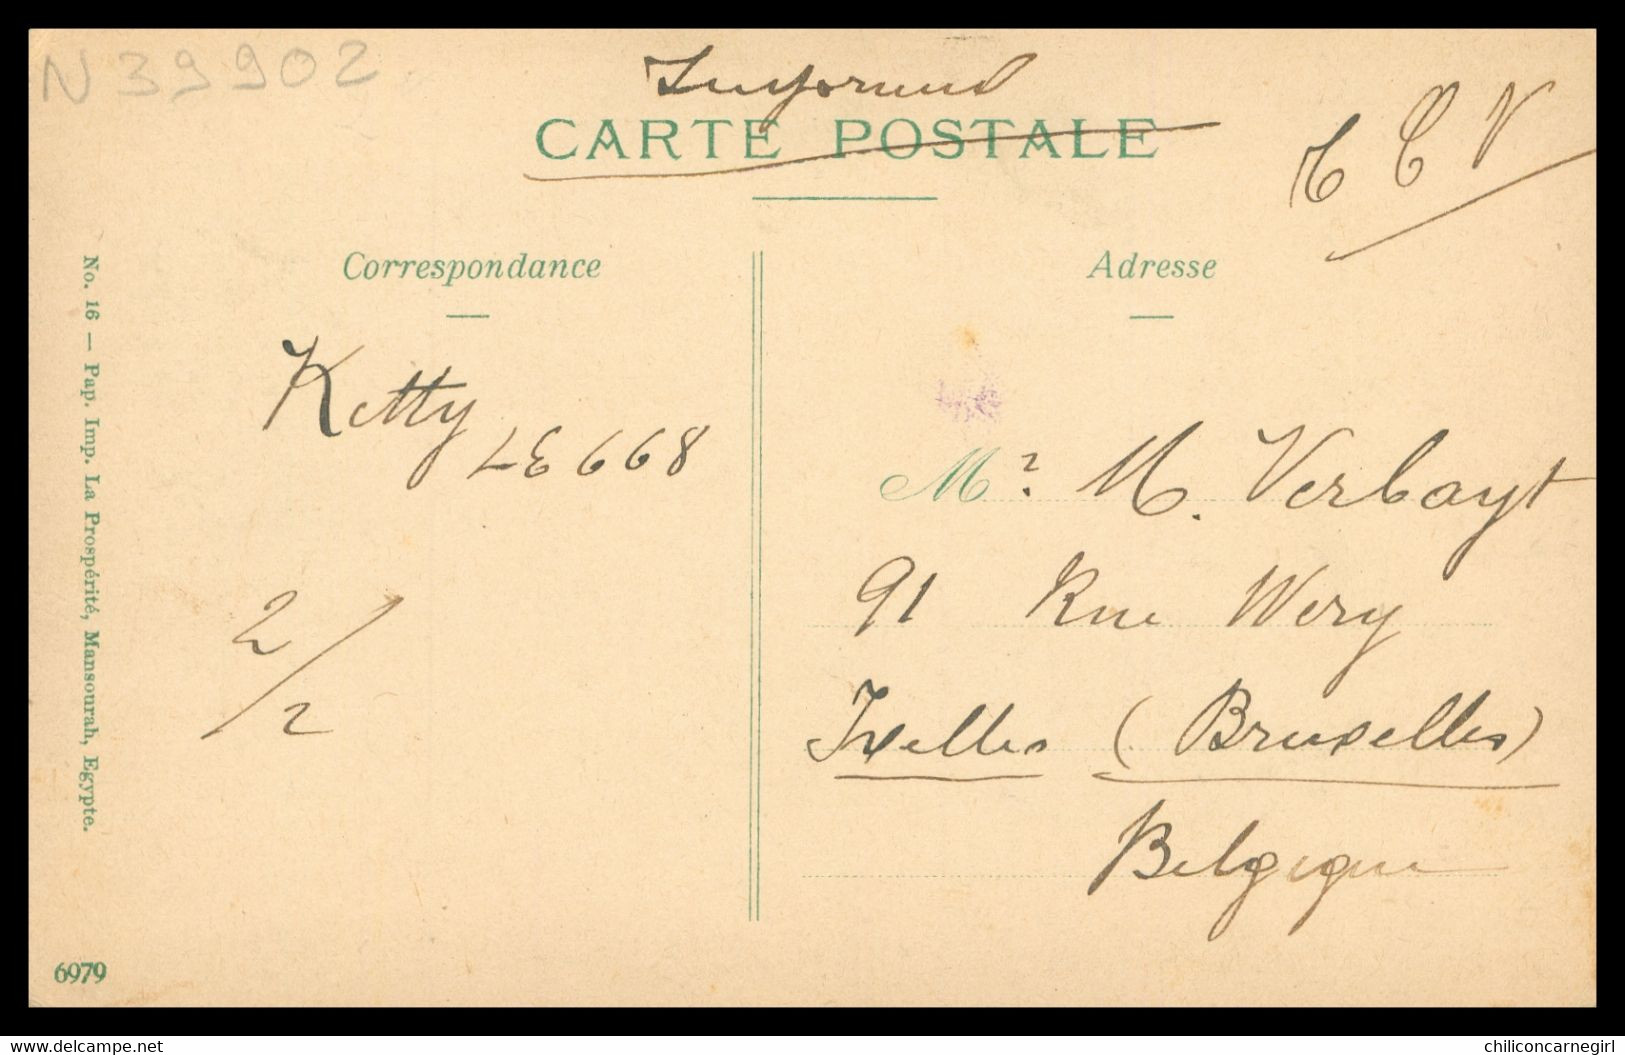 N39902
CARTE POSTALE
T C V
Correspondance
Adresse
No. 16 — Pap. Imp. La Prospérité, Mansourah, Egypte.
Ketty
LE 668
Mr. M. Verbayst
91 Rue Wery
Ixelles (Bruxelles)
Belgique
2/2
6979
www.delcampe.net
chiliconcarnegirl